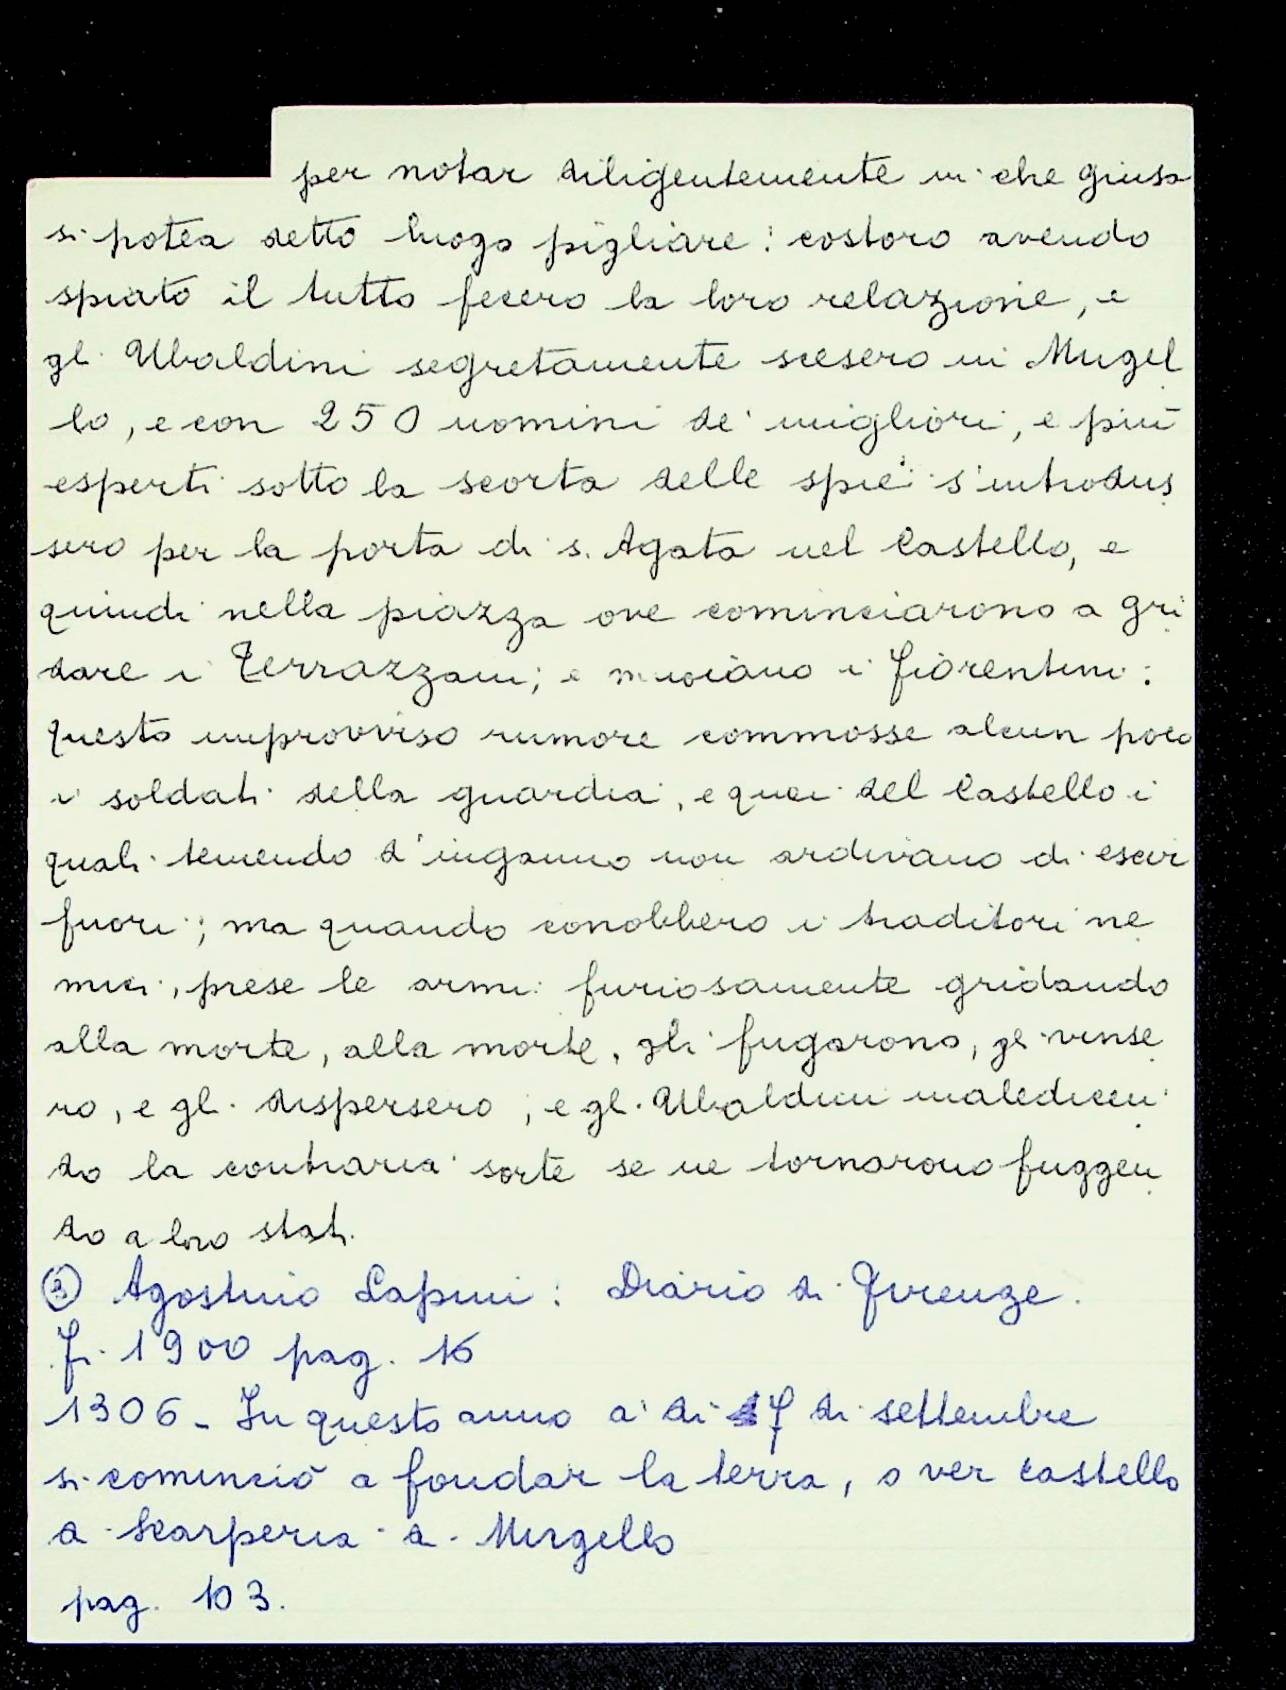 per notar diligentemente in che guisa
si potea detto luogo pigliare: costoro avendo
spiato il tutto fecero la loro relazione, e
gl. Ubaldini segretamente scesero in Mugel
lo, e con 250 uomini de' migliori, e più
esperti sotto la scorta delle spie s'introdus
sero per la porta di s. Agata nel Castello, e
quindi nella piazza ove cominciarono a gri
dare i Terrazzani; e muoiano i fiorentini:
questo improvviso rumore commosse alcun poco
i soldati della guardia, e quei del Castello i
quali temendo d'inganno non ardivano di escir
fuori; ma quando conobbero i traditori ne
mici, prese le armi furiosamente gridando
alla morte, alla morte, gli fugarono, gl vinse
ro, e gl. dispersero, e gl. Ubaldini maledicen
do la contraria sorte se ne tornarono fuggen
do a loro stati.
③ Agostino Lapini: Diario di Firenze.
Fi. 1900 pag. 16
1306 - In questo anno a' di 7 di settembre
si cominciò a fondar la terra, o ver castello
di Scarperia di Mugello
pag. 103.